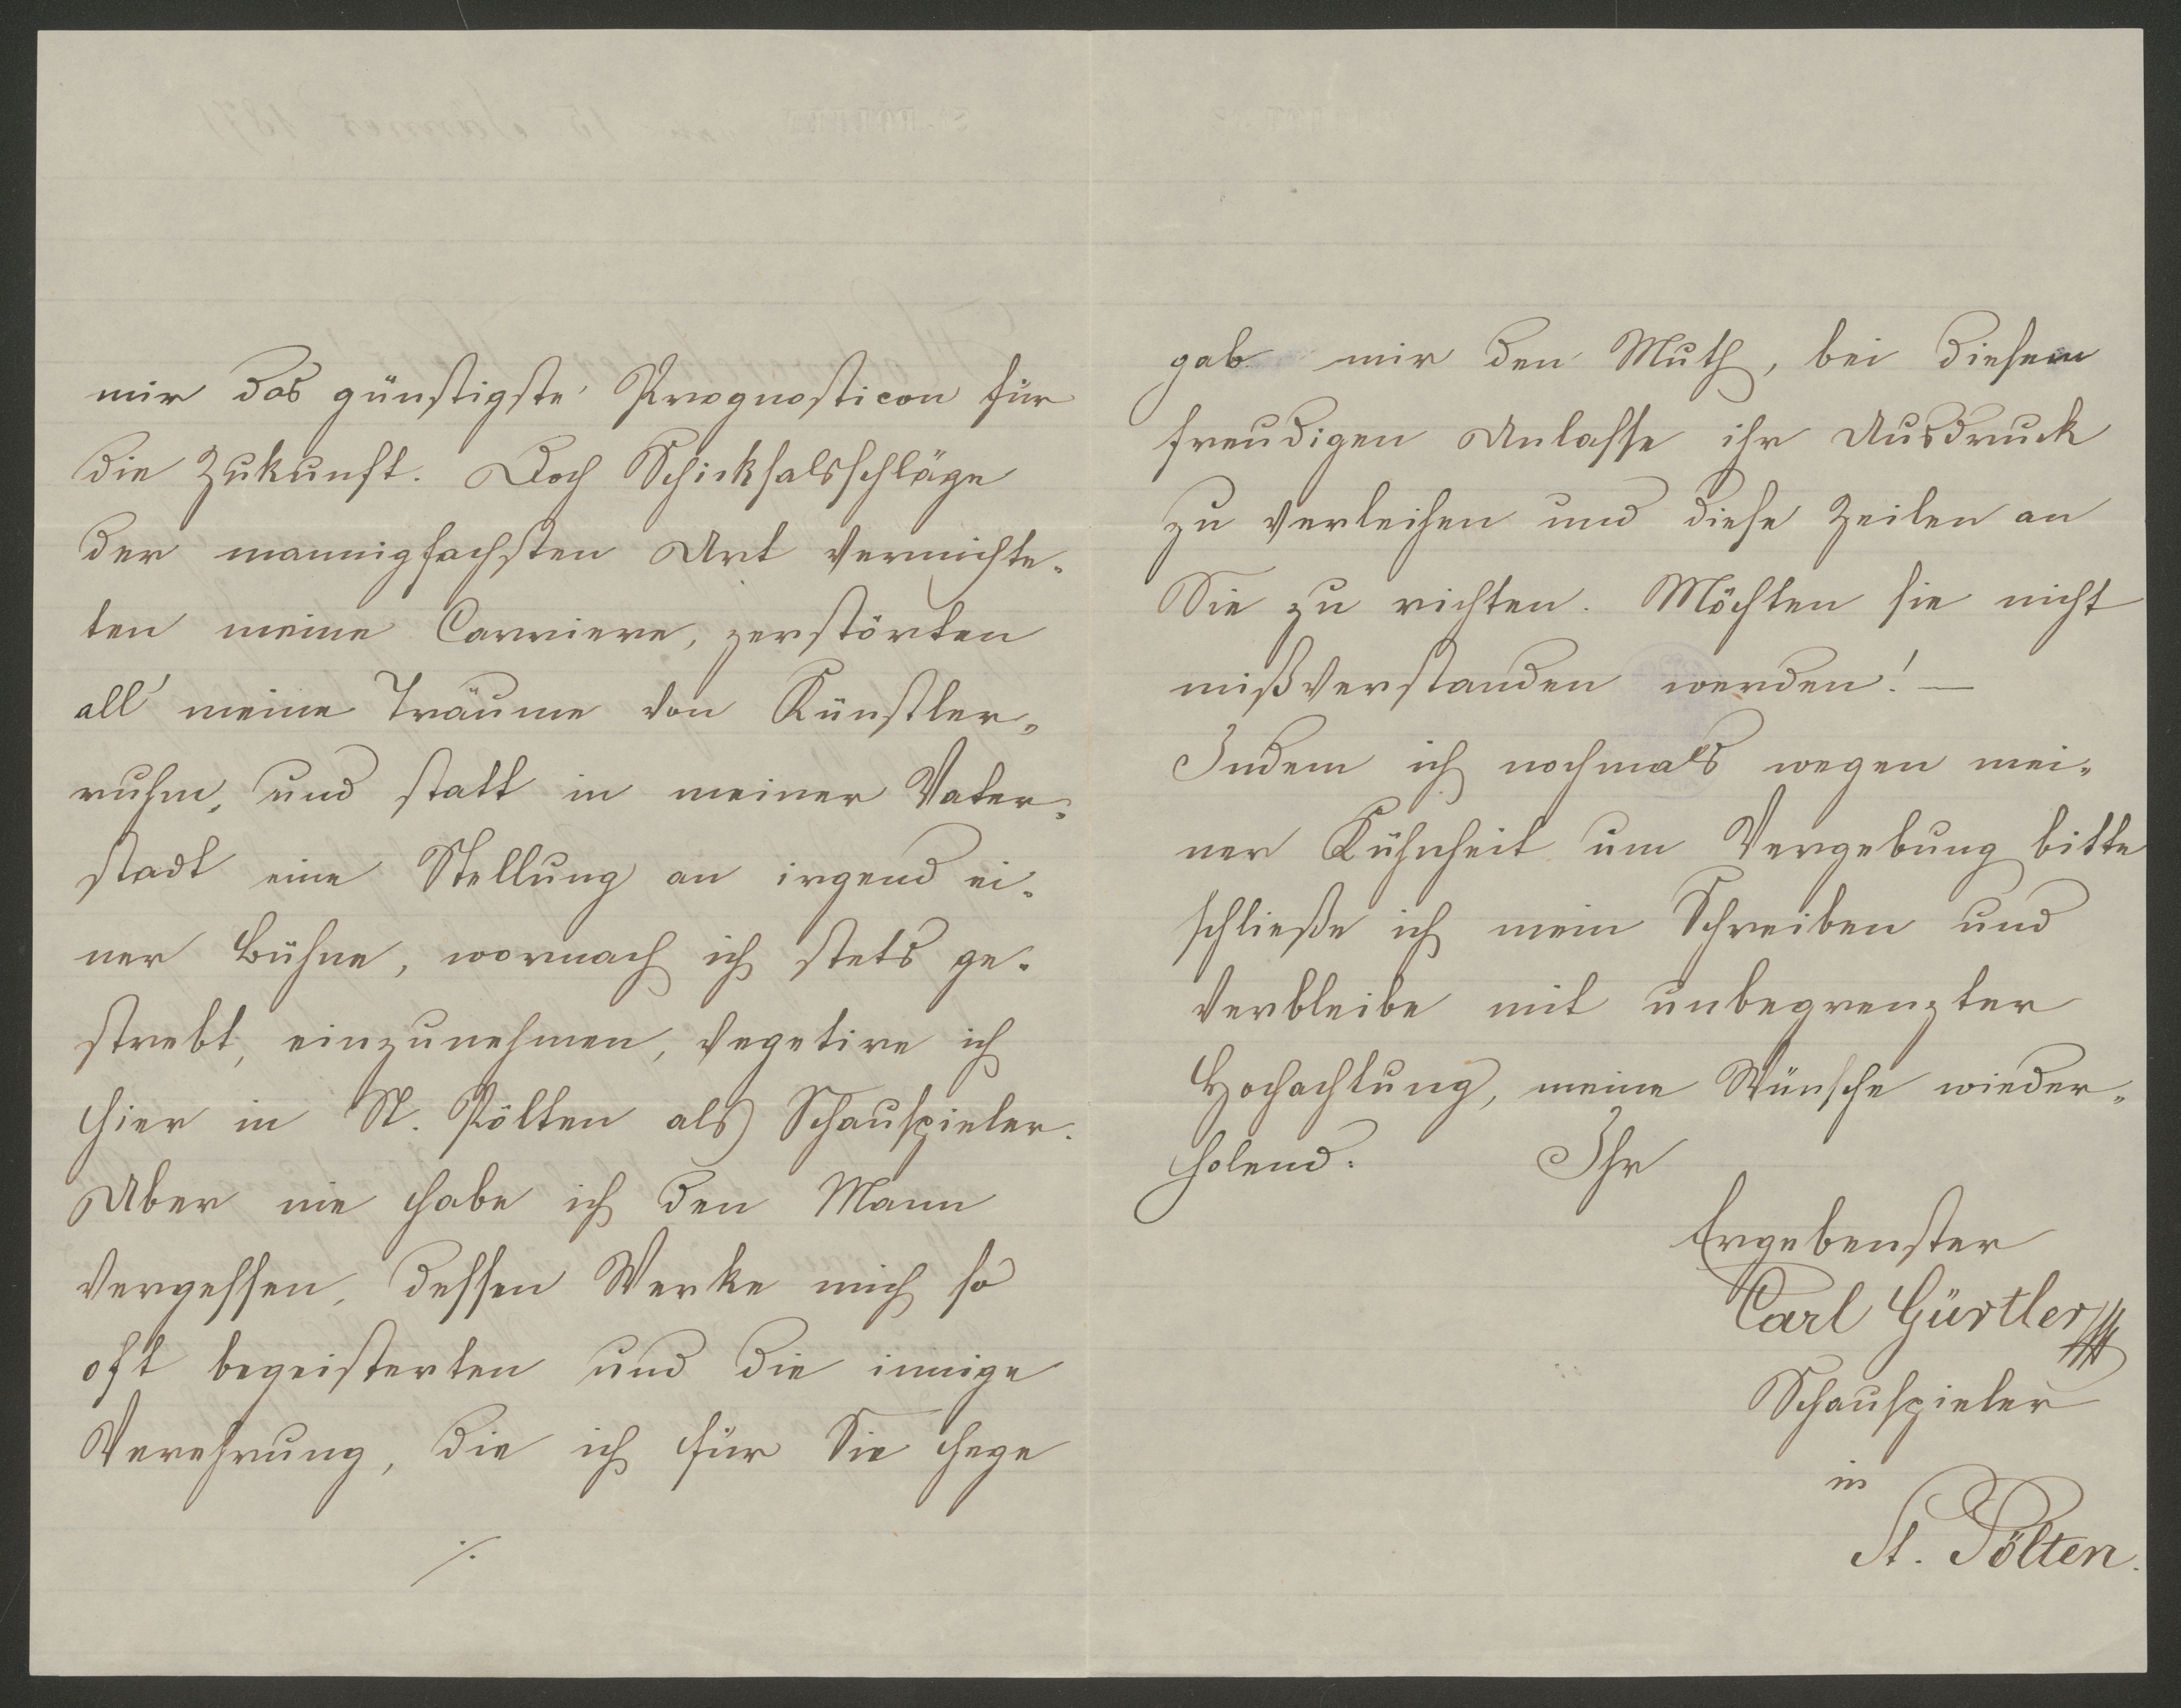 mir das günstigste Prognosticon für
die Zukunft. Doch Schicksalsschläge
der mannigfachsten Art vernichte-
ten meine Carriere, zerstörten
all' meine Träume von Künstler-
ruhm, und statt in meiner Vater-
stadt eine Stellung an irgend ei-
ner Bühne, wornach ich stets ge-
strebt, einzunehmen, vegetire ich
hier in St. Pölten als Schauspieler.
Aber nie habe ich den Mann
vergessen, dessen Werke mich so
oft begeisterten und die innige
Verehrung, die ich für Sie hege
./.
gab mir den Muth, bei diesem
freudigen Anlasse ihr Ausdruck
zu verleihen und diese Zeilen an
Sie zu richten. Möchten sie nicht
mißverstanden werden! —
Indem ich nochmals wegen mei-
ner Kühnheit um Vergebung bitte
schließe ich mein Schreiben und
verbleibe mit unbegrenzter
Hochachtung, meine Wünsche wieder-
holend: Ihr
Ergebenster
Carl Gürtler
Schauspieler
in
St. Pölten.